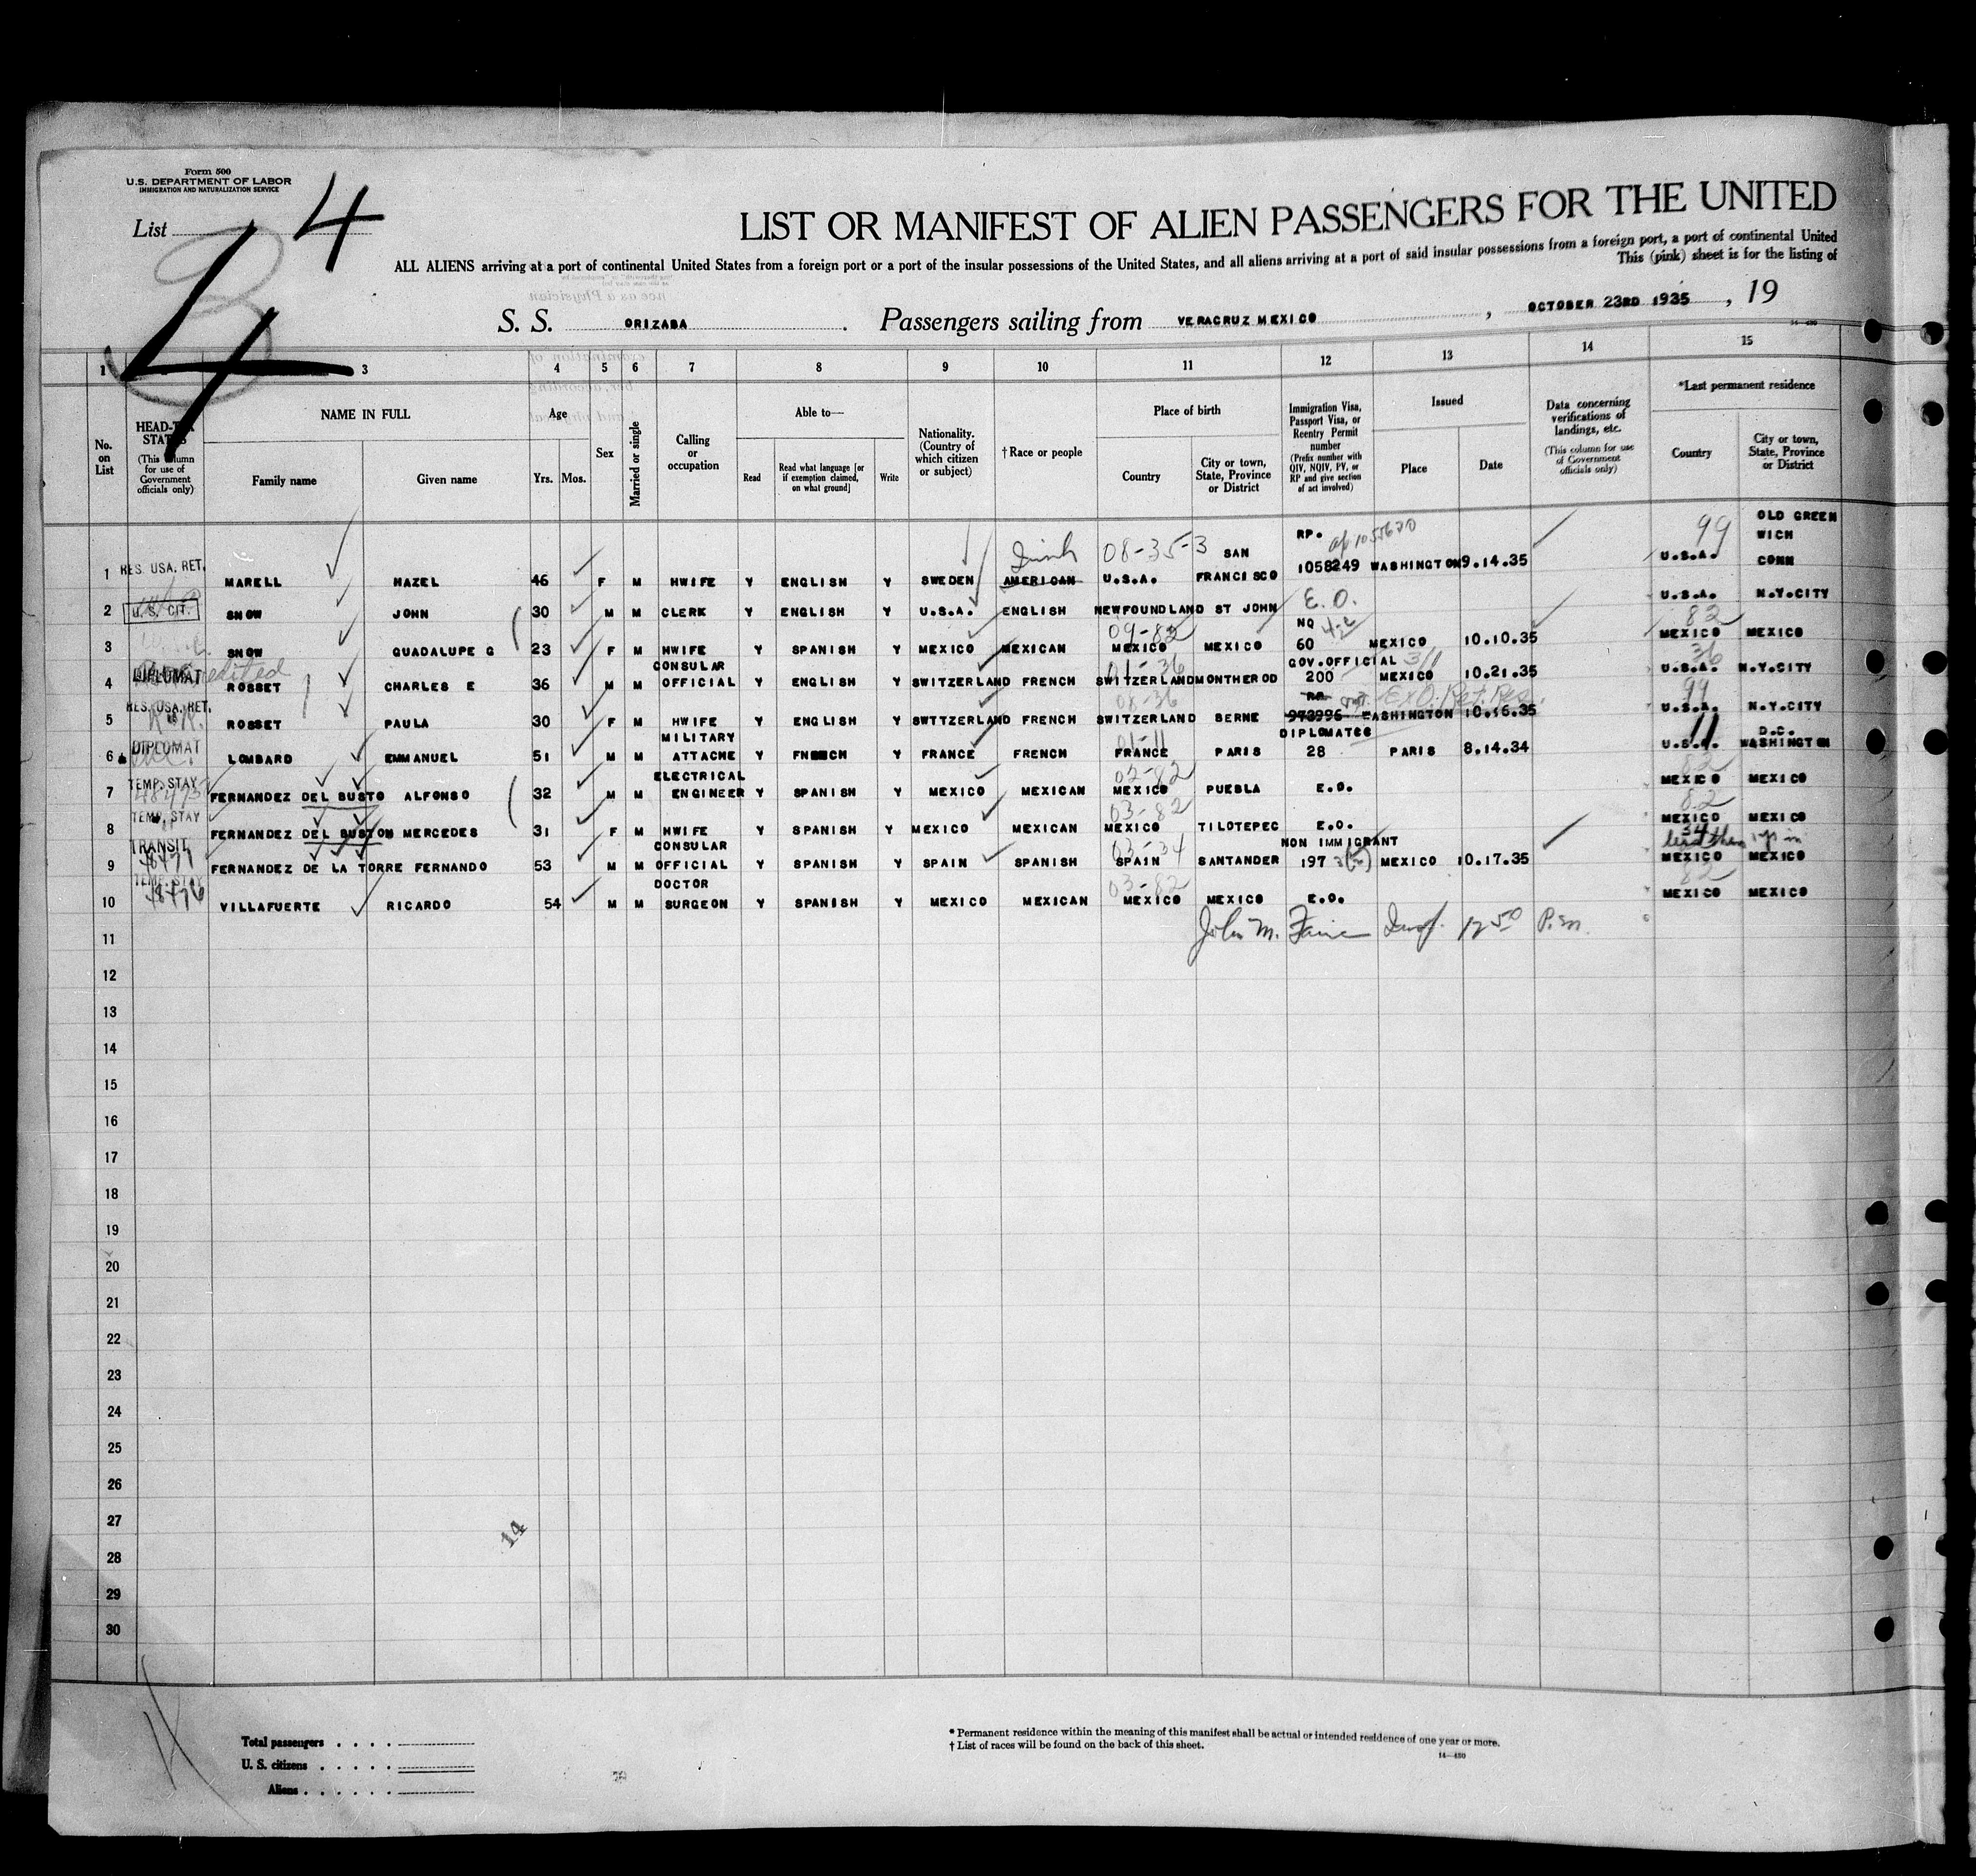 Form 500
U.S. DEPARTMENT OF LABOR
IMMIGRATION AND NATURALIZATION SERVICE
List 4
3
4
LIST OR MANIFEST OF ALIEN PASSENGERS FOR THE UNITED
ALL ALIENS arriving at a port of continental United States from a foreign port or a port of the insular possessions of the United States, and all aliens arriving at a port of said insular possessions from a foreign port, a port of continental United
This (pink) sheet is for the listing of
S. S. ORIZABA . Passengers sailing from VERACRUZ MEXICO , OCTOBER 23RD 1935 , 19
14—430
1 3 4 5 6 7 8 9 10 11 12 13 14 15
No. on List
HEAD-TAX STATUS (This column for use of Government officials only)
NAME IN FULL
Family name Given name
Age Yrs. Mos.
Sex
Married or single
Calling or occupation
Able to—
Read Read what language [or if exemption claimed, on what ground] Write
Nationality. (Country of which citizen or subject)
† Race or people
Place of birth
Country City or town, State, Province or District
Immigration Visa, Passport Visa, or Reentry Permit number (Prefix number with QIV, NQIV, PV, or RP and give section of act involved)
Issued
Place Date
Data concerning verifications of landings, etc. (This column for use of Government officials only)
*Last permanent residence
Country City or town, State, Province or District
Irish 08-35-3 SAN RP. 99 OLD GREEN WICH
1 RES. USA. RET. MARELL HAZEL 46 F M HWIFE Y ENGLISH Y SWEDEN AMERICAN U.S.A. FRANCISCO 1058249 WASHINGTON 9.14.35 U.S.A. CONN
2 U. S. CIT. SNOW JOHN 30 M M CLERK Y ENGLISH Y U.S.A. ENGLISH NEWFOUNDLAND ST JOHN E.O. U.S.A. N.Y.CITY
09-82 NQ 4-2 82
3 SNOW GUADALUPE G 23 F M HWIFE Y SPANISH Y MEXICO MEXICAN MEXICO MEXICO 60 MEXICO 10.10.35 MEXICO MEXICO
CONSULAR 01-36 GOV.OFFICIAL 3/1 36
4 DIPLOMAT ROSSET CHARLES E 36 M M OFFICIAL Y ENGLISH Y SWITZERLAND FRENCH SWITZERLAND MONTHEROD 200 MEXICO 10.21.35 U.S.A. N.Y.CITY
08-36 RP Ret. Res. 99
5 RES. USA. RET. ROSSET PAULA 30 F M HWIFE Y ENGLISH Y SWTTZERLAND FRENCH SWITZERLAND BERNE 973996 WASHINGTON 10.16.35 U.S.A. N.Y.CITY
MILITARY 01-11 DIPLOMATES 11 D.C.
6 DIPLOMAT LOMBARD EMMANUEL 51 M M ATTACHE Y FNENCH Y FRANCE FRENCH FRANCE PARIS 28 PARIS 8.14.34 U.S.A. WASHINGTON
ELECTRICAL 02-82 82
7 TEMP. STAY FERNANDEZ DEL BUSTO ALFONSO 32 M M ENGINEER Y SPANISH Y MEXICO MEXICAN MEXICO PUEBLA E.O. MEXICO MEXICO
03-82 82
8 TEMP. STAY FERNANDEZ DEL BUSTON MERCEDES 31 F M HWIFE Y SPANISH Y MEXICO MEXICAN MEXICO TILOTEPEC E.O. MEXICO MEXICO
CONSULAR 03-34 NON IMMIGRANT 34 less than 1 yr in
9 TRANSIT FERNANDEZ DE LA TORRE FERNANDO 53 M M OFFICIAL Y SPANISH Y SPAIN SPANISH SPAIN SANTANDER 197 MEXICO 10.17.35 MEXICO MEXICO
DOCTOR 03-82 82
10 TEMP. STAY VILLAFUERTE RICARDO 54 M M SURGEON Y SPANISH Y MEXICO MEXICAN MEXICO MEXICO E.O. MEXICO MEXICO
11 John M. Insp. 12 50 P.m.
12
13
14
15
16
17
18
19
20
21
22
23
24
25
26
27
14
28
29
30
Total passengers
U. S. citizens
Aliens
* Permanent residence within the meaning of this manifest shall be actual or intended residence of one year or more.
† List of races will be found on the back of this sheet.
14—430